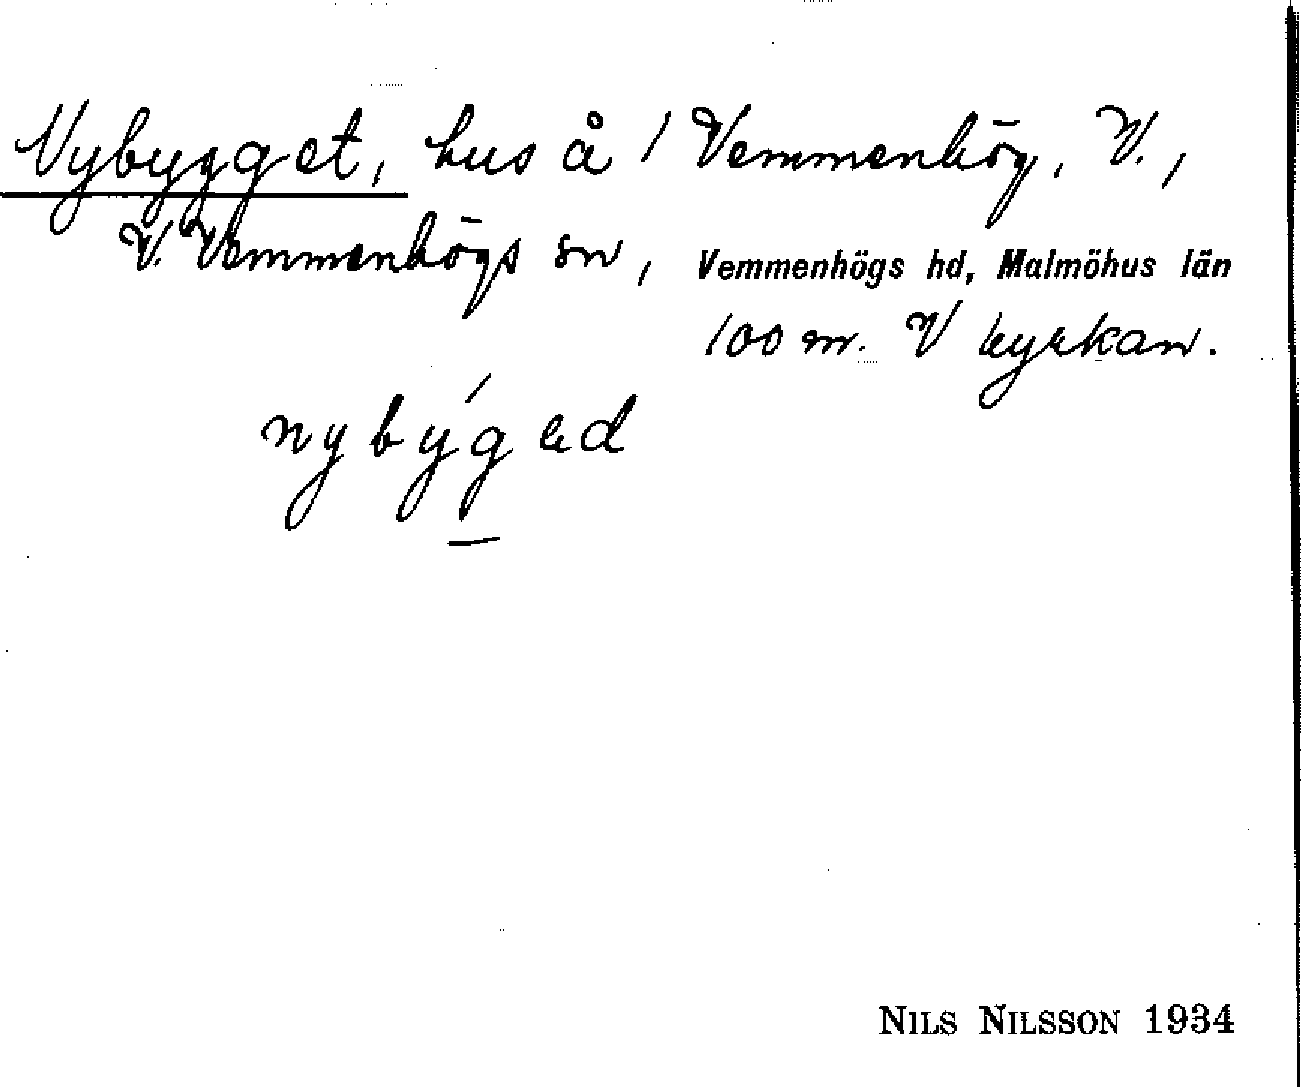 Nybygget, hus å 1 Vemmenhög, V.,
V. Vemmenhögs sn, Vemmenhögs hd, Malmöhus län
100 m. V kyrkan.
nybýged
NILS NILSSON 1934